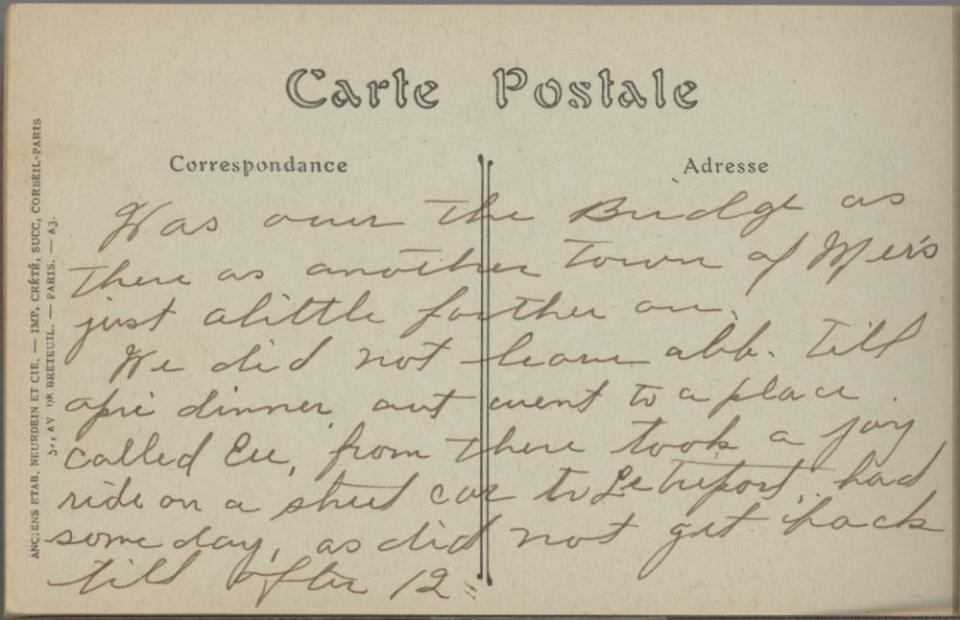 Carte Postale
Correspondance
Adresse
Was over the Bridge as
there as another town of Mers
just alittle farther on.
We did not leave abb. till
apri dinner, aut went to a place
called Eu, from there took a joy
ride on a street car to Le Treport, had
some day, as did not get back
till after 12
ANCIENS ETAB. NEURDEIN ET CIE. — IMP. CRÉTÉ, SUCC, CORBEIL-PARIS
BRETEUIL. — PARIS. — A3.